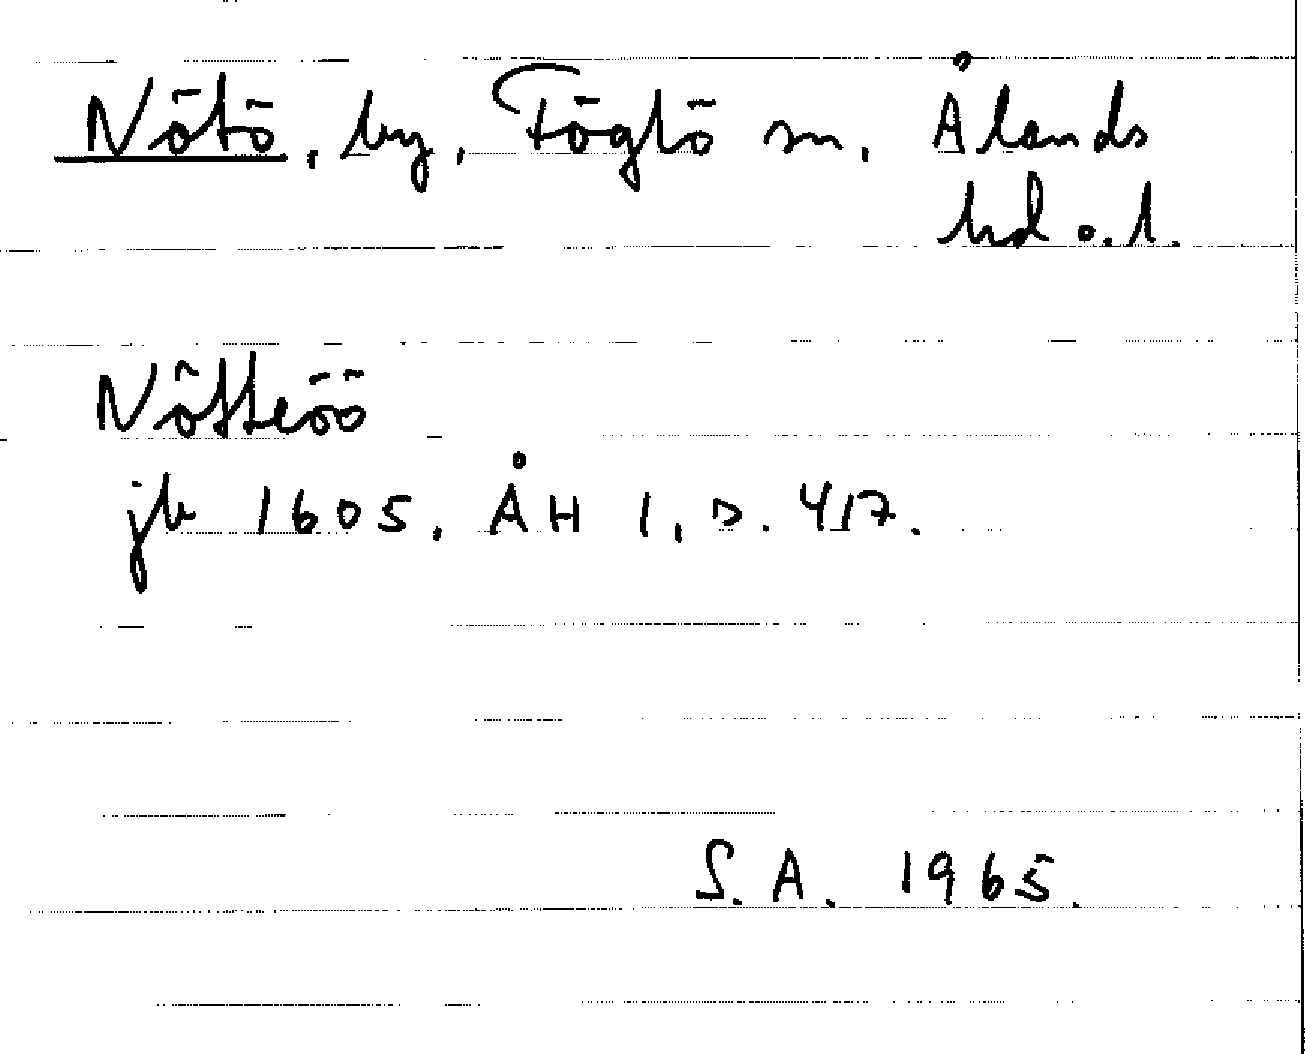 Nötö, by, Föglö sn, Ålands
hd o. l.
Nötteöö
jb 1605, ÅH 1, s. 417.
S. A. 1965.